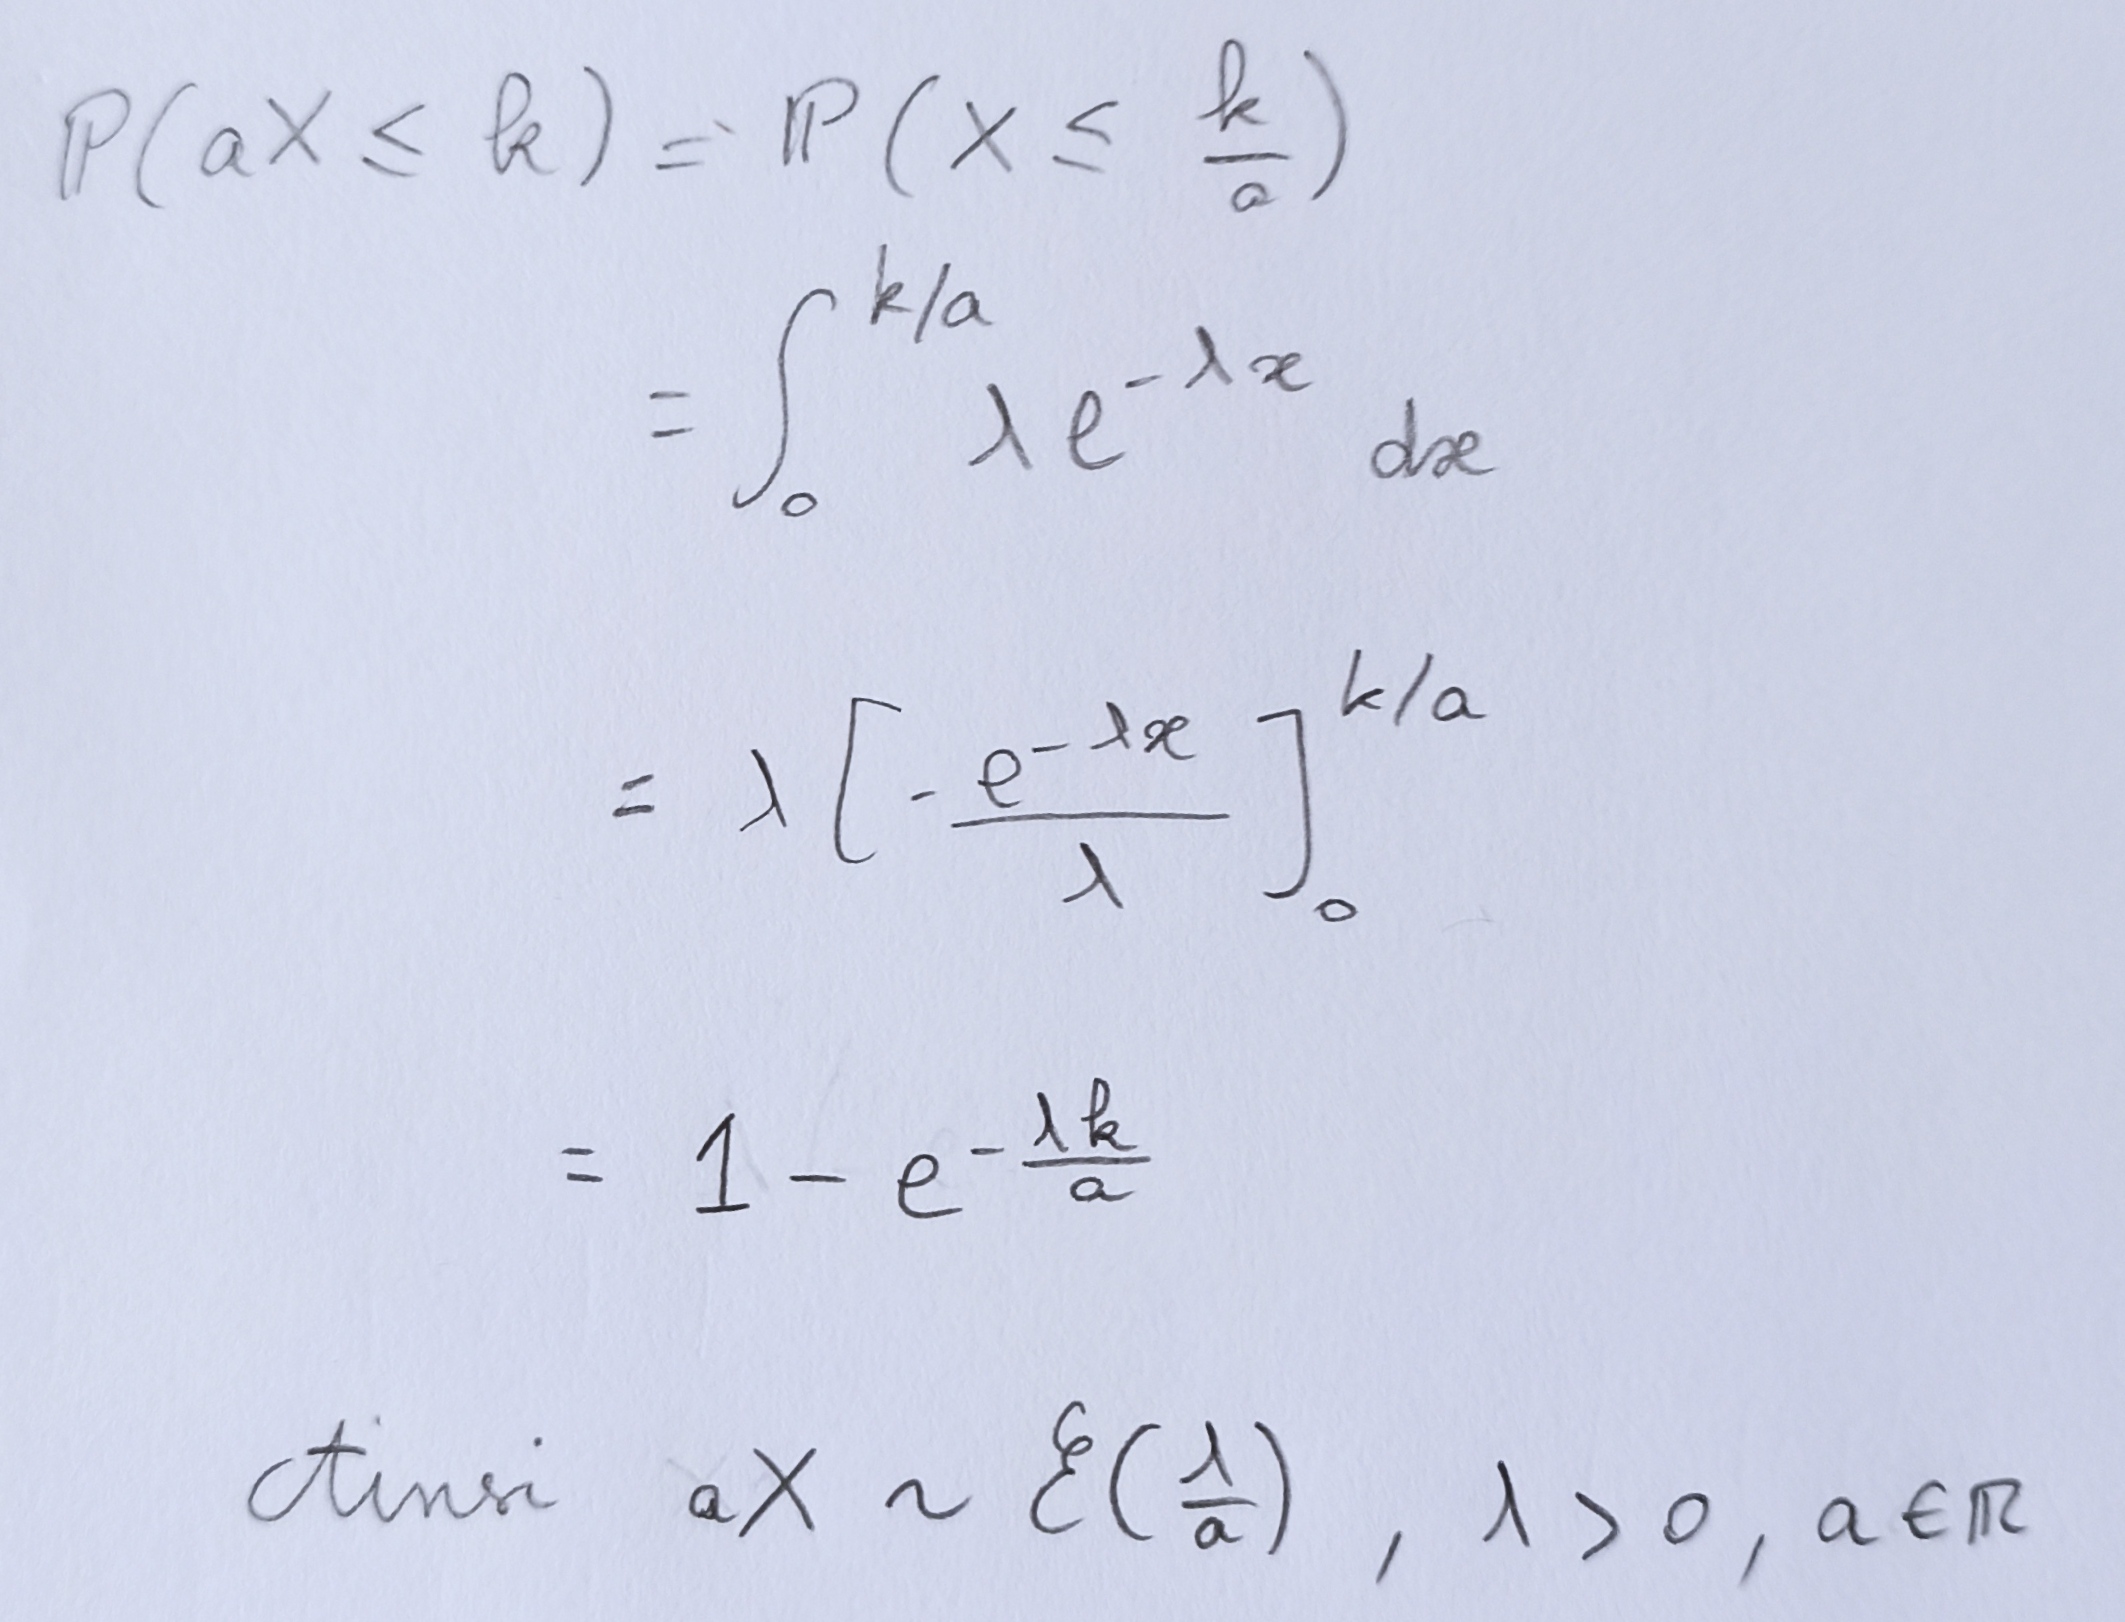 ℙ(aX ≤ k) = ℙ(X ≤ \frac{k}{a})
= ∫_0^{k/a} λ e^{-λx} dx
= λ [ - \frac{e^{-λx}}{λ} ]_0^{k/a}
= 1 - e^{-\frac{λk}{a}}
Ainsi aX ~ ℰ(\frac{λ}{a}), λ > 0, a ∈ ℝ